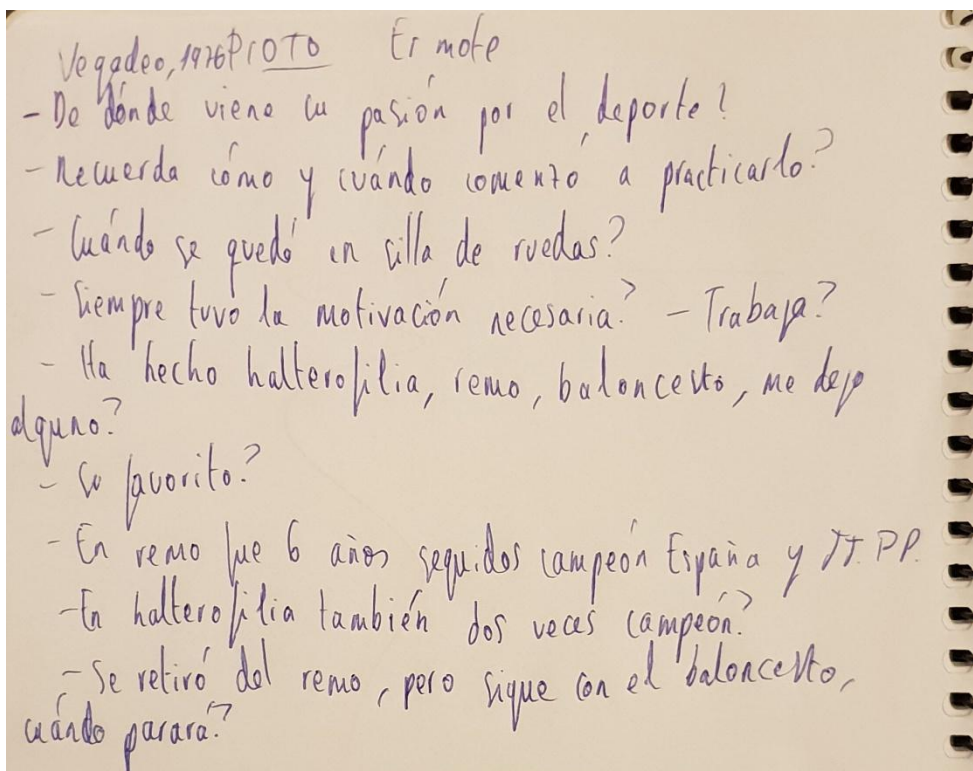 Vegadeo, 1976 PROTO Er mote
- De dónde viene su pasión por el deporte?
- Recuerda cómo y cuándo comenzó a practicarlo?
- Cuándo se quedó en silla de ruedas?
- Siempre tuvo la motivación necesaria? - Trabaja?
- Ha hecho halterofilia, remo, baloncesto, me dejo
alguno?
- Su favorito?
- En remo fue 6 años seguidos campeón España y JJ.PP.
- En halterofilia también dos veces campeón?
- Se retiró del remo, pero sigue con el baloncesto,
cuándo parará?